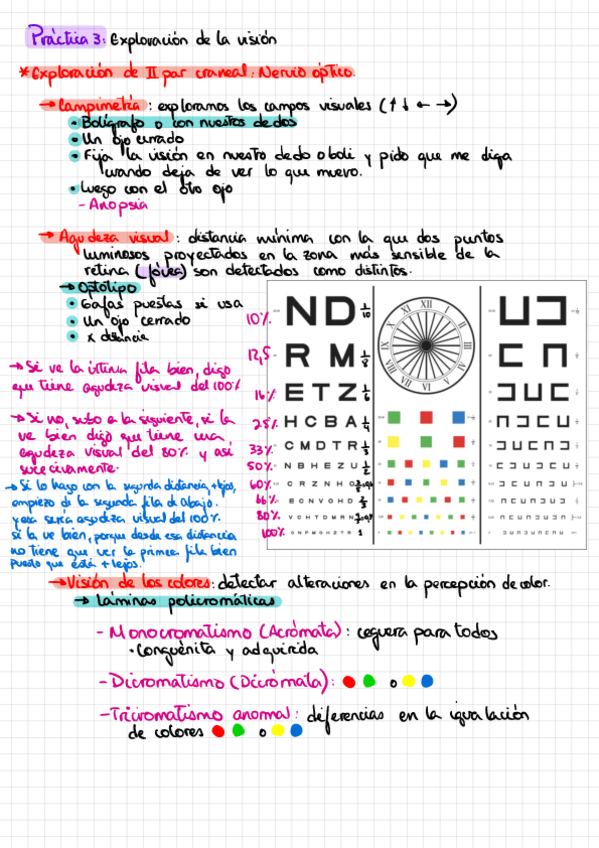 Práctica 3: Exploración de la visión
* Exploración de II par craneal: Nervio óptico.
→ Campimetría: exploramos los campos visuales (↑ ↓ ← →)
• Bolígrafo o con nuestros dedos
• Un ojo cerrado
• Fija la visión en nuestro dedo o boli y pido que me diga
cuando deja de ver lo que muevo.
• Luego con el otro ojo
- Anopsia
→ Agudeza visual: distancia mínima con la que dos puntos
luminosos proyectados en la zona más sensible de la
retina (fóvea) son detectados como distintos.
→ Optótipo
• Gafas puestas si usa
• Un ojo cerrado
• x distancia
→ Si ve la última fila bien, digo
que tiene agudeza visual del 100%
→ Si no, subo a la siguiente, si la
ve bien digo que tiene una
agudeza visual del 80% y así
sucecivamente.
→ Si lo hago con la segunda distancia, + lejos,
empiezo de la segunda fila de abajo.
y esa sería agudeza visual del 100%.
si la ve bien, porque desde esa distancia
no tiene que ver la primera fila bien
puesto que está + lejos.
10% ND 1/10
12,5 R M 1/8
16% ETZ 1/6
25% HCBA 1/4
33% CMDTR 1/3
50% NBHEZU 1/2
60% CRZNHO
66% ECNVOHD 2/3
80% VCHTDMRN
100% 1
XII I II III IX X XI
→ Visión de los colores: detectar alteraciones en la percepción de color.
→ Láminas policromáticas
- Monocromatismo (Acrómata): ceguera para todos
• Conguénita y adquirida
- Dicromatismo (Dicrómata): o
- Tricromatismo anormal: diferencias en la igualación
de colores o